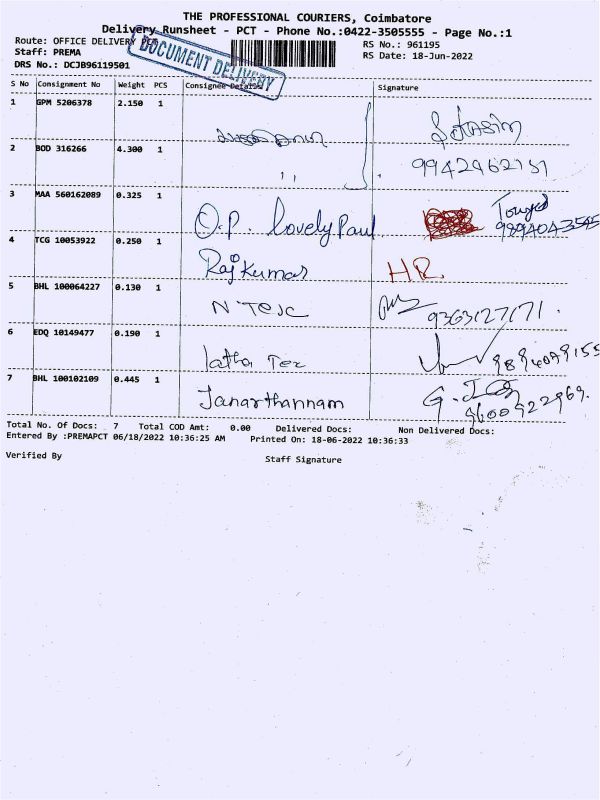 THE PROFESSIONAL COURIERS, Coimbatore
Delivery Runsheet - PCT - Phone No.:0422-3505555 - Page No.:1
Route: OFFICE DELIVERY
RS No.: 961195
Staff: PREMA
RS Date: 18-Jun-2022
DRS No.: DCJB96119501
DOCUMENT DELIVERY
S No Consignment No Weight PCS Consignee Details Signature
1 GPM 5206378 2.150 1
2 BOD 316266 4.300 1 " 9942462151
3 MAA 560162089 0.325 1 O.P. Lovely Paul
4 TCG 10053922 0.250 1 Raj Kumar HR
5 BHL 100064227 0.130 1 N Tex 9363127171
6 EDQ 10149477 0.190 1 latha Tex
7 BHL 100102109 0.445 1 Janarthannam 9600922969
Total No. Of Docs: 7 Total COD Amt: 0.00 Delivered Docs: Non Delivered Docs:
Entered By :PREMAPCT 06/18/2022 10:36:25 AM Printed On: 18-06-2022 10:36:33
Verified By Staff Signature